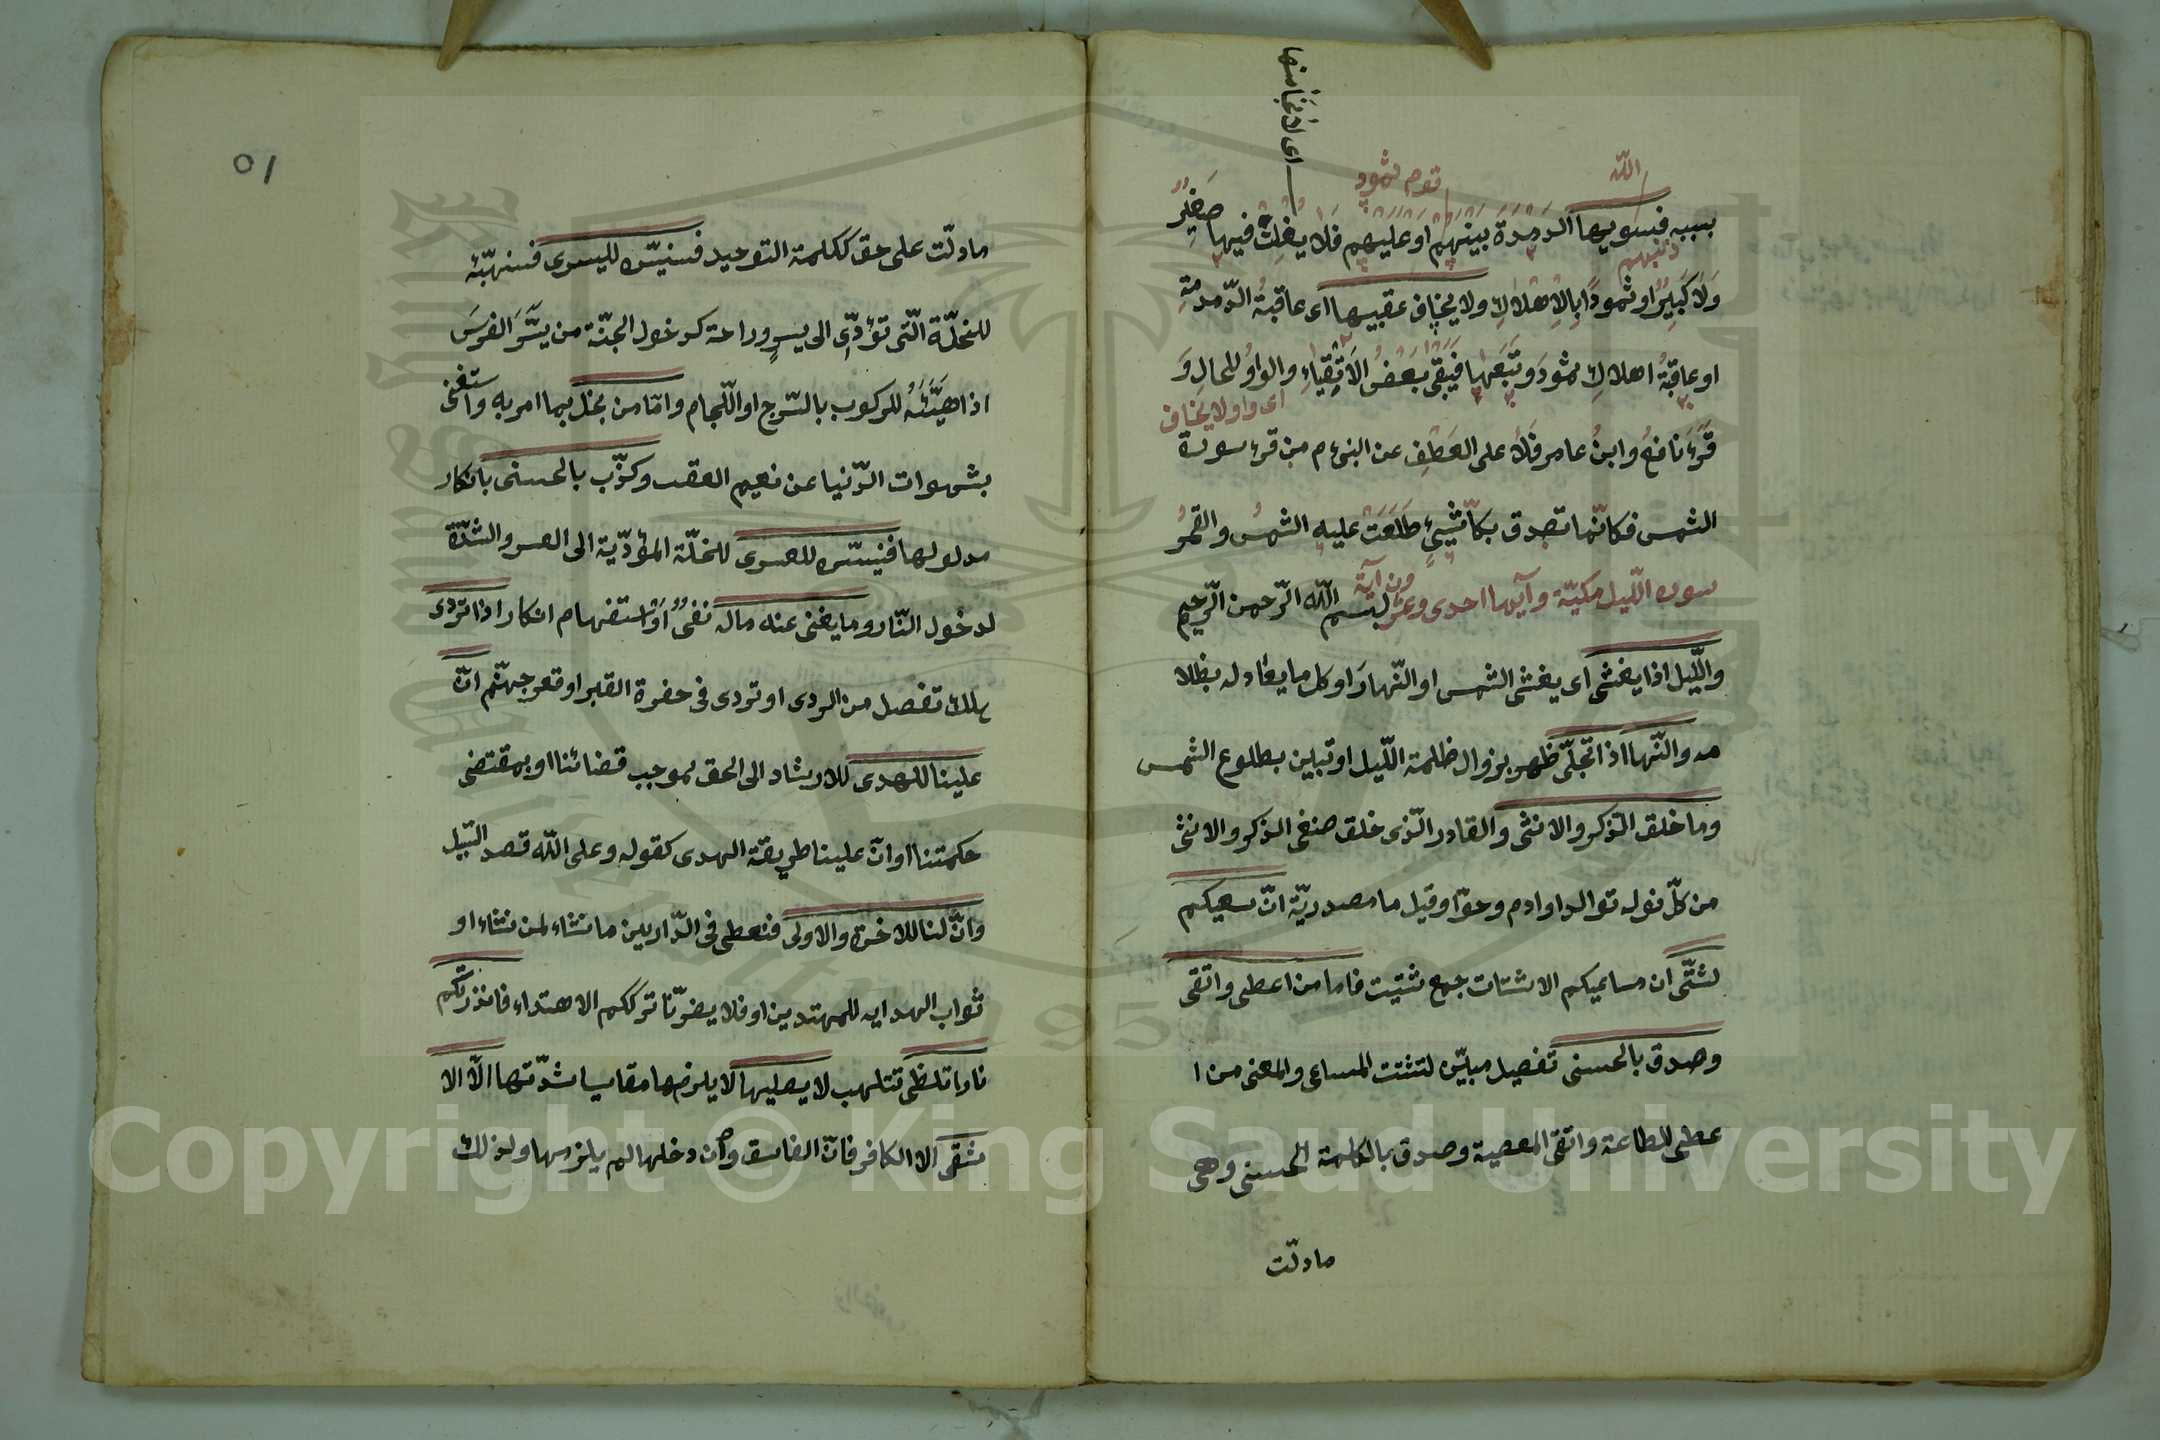 اى لا ينجا منها
الله
قوم ثمود
بسببه فسويها الدمدة بينهم او عليهم فلا يفلت فيها صغير
ذنبهم
ولا كبير او ثمودا بالاهلاك ولا يخاف عقبيها اى عاقبة الدمدمة
او عاقبة اهلاك ثمود وتبعها فيبقى بعض الابقاء والواو للحال و
اى واو لا يخاف
قرء نافع وابن عامر فلا على العطف عن النبى م من قرء سورة
الشمس فكانما تصدق بكل شيئ طلعت عليه الشمس والقمر
سوره الليل مكيّة وآيها احدى وعشرون آية بسم الله الرّحمن الرّحيم
والّيل اذا يغشى اى يغشى الشمس او النّهار او كل ما يعادله بظلا
مه والنّهار اذا تجلّى ظهر بزوال ظلمة اللّيل او تبين بطلوع الشمس
وما خلق الذكر والانثى والقادر الّذى خلق صنفى الذكر والانثى
من كلّ نوله توالد او ادم وحوّا وقيل ما مصدريّة انّ سعيكم
لشتّى ان مساعيكم الاشتات جمع شتيت فاما من اعطى واتقى
وصدق بالحسنى تفصيل مبيّن لتشتت المساعى والمعنى من ا
عطى للطاعة واتقى المعصية وصدق بالكلمة الحسنى وهى
ما دلّت
٥١
ما دلّت على حق ككلمة التوحيد فسنيسّره لليسرى فسنهيّئه
للخلّة الّتى تؤدّى الى يسر وراحة كدخول الجنّة من يسّر الفرس
اذا هيّئه للركوب بالسّرج او اللّجام وامّا من بخل بما امر به واستغنى
بشهوات الدّنيا عن نعيم العقبى وكذّب بالحسنى بانكار
مدلولها فنيسّره للعسرى للخلّة المؤدّية الى العسر والشدّة
لدخول النّار وما يغنى عنه ماله نفى او استفهام انكار اذا تردى
هلك تفعل من الردى او تردى فى حفرة القبر او قعر جهنّم انّ
علينا للهدى للارشاد الى الحق بموجب قضائنا او بمقتضى
حكمتنا او انّ علينا طريقة الهدى كقوله وعلى الله قصد السّبيل
وانّ لنا للاخرة والاولى فنعطى فى الدّارين ما نشاء لمن نشاء او
ثواب الهدايه للمهتدين او فلا يضرّنا ترككم الاهتداء فانذرتكم
نارا تلظى تتلهب لا يصليها لا يلزمها مقاسيا شدّتها الّا الا
شقى الا الكافر فانّ الفاسق وان دخلها لم يلزمها ولذلك
Copyright © King Saud University